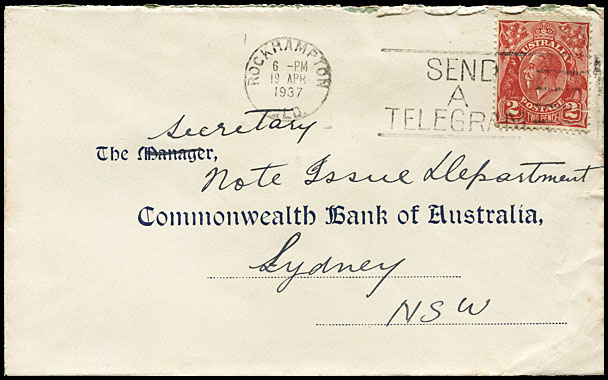 ROCKHAMPTON
6 - PM
19 APR
1937
QLD.
SEND
A
TELEGRAM
AUSTRALIA
POSTAGE
2 TWO PENCE 2
Secretary
The Manager,
Note Issue Department
Commonwealth Bank of Australia,
Sydney
NSW